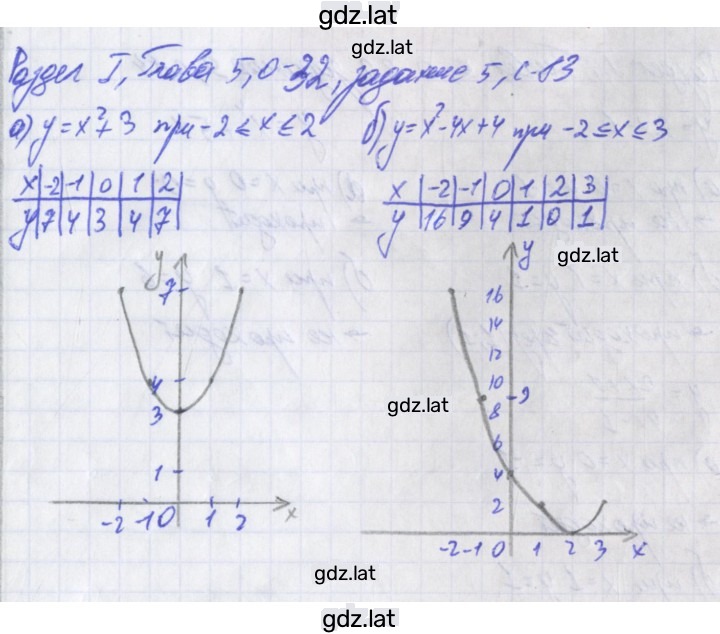 gdz.lat
gdz.lat
Раздел I, Глава 5, О-32, задание 5, с-83
а) y = x² + 3 при -2 ≤ x ≤ 2
б) y = x² - 4x + 4 при -2 ≤ x ≤ 3
x | -2 | -1 | 0 | 1 | 2
y | 7 | 4 | 3 | 4 | 7
x | -2 | -1 | 0 | 1 | 2 | 3
y | 16 | 9 | 4 | 1 | 0 | 1
gdz.lat
y
7
4
3
1
-2 -1 0 1 2 x
y
16
14
12
10
9
8
6
4
2
-2 -1 0 1 2 3 x
gdz.lat
gdz.lat
gdz.lat